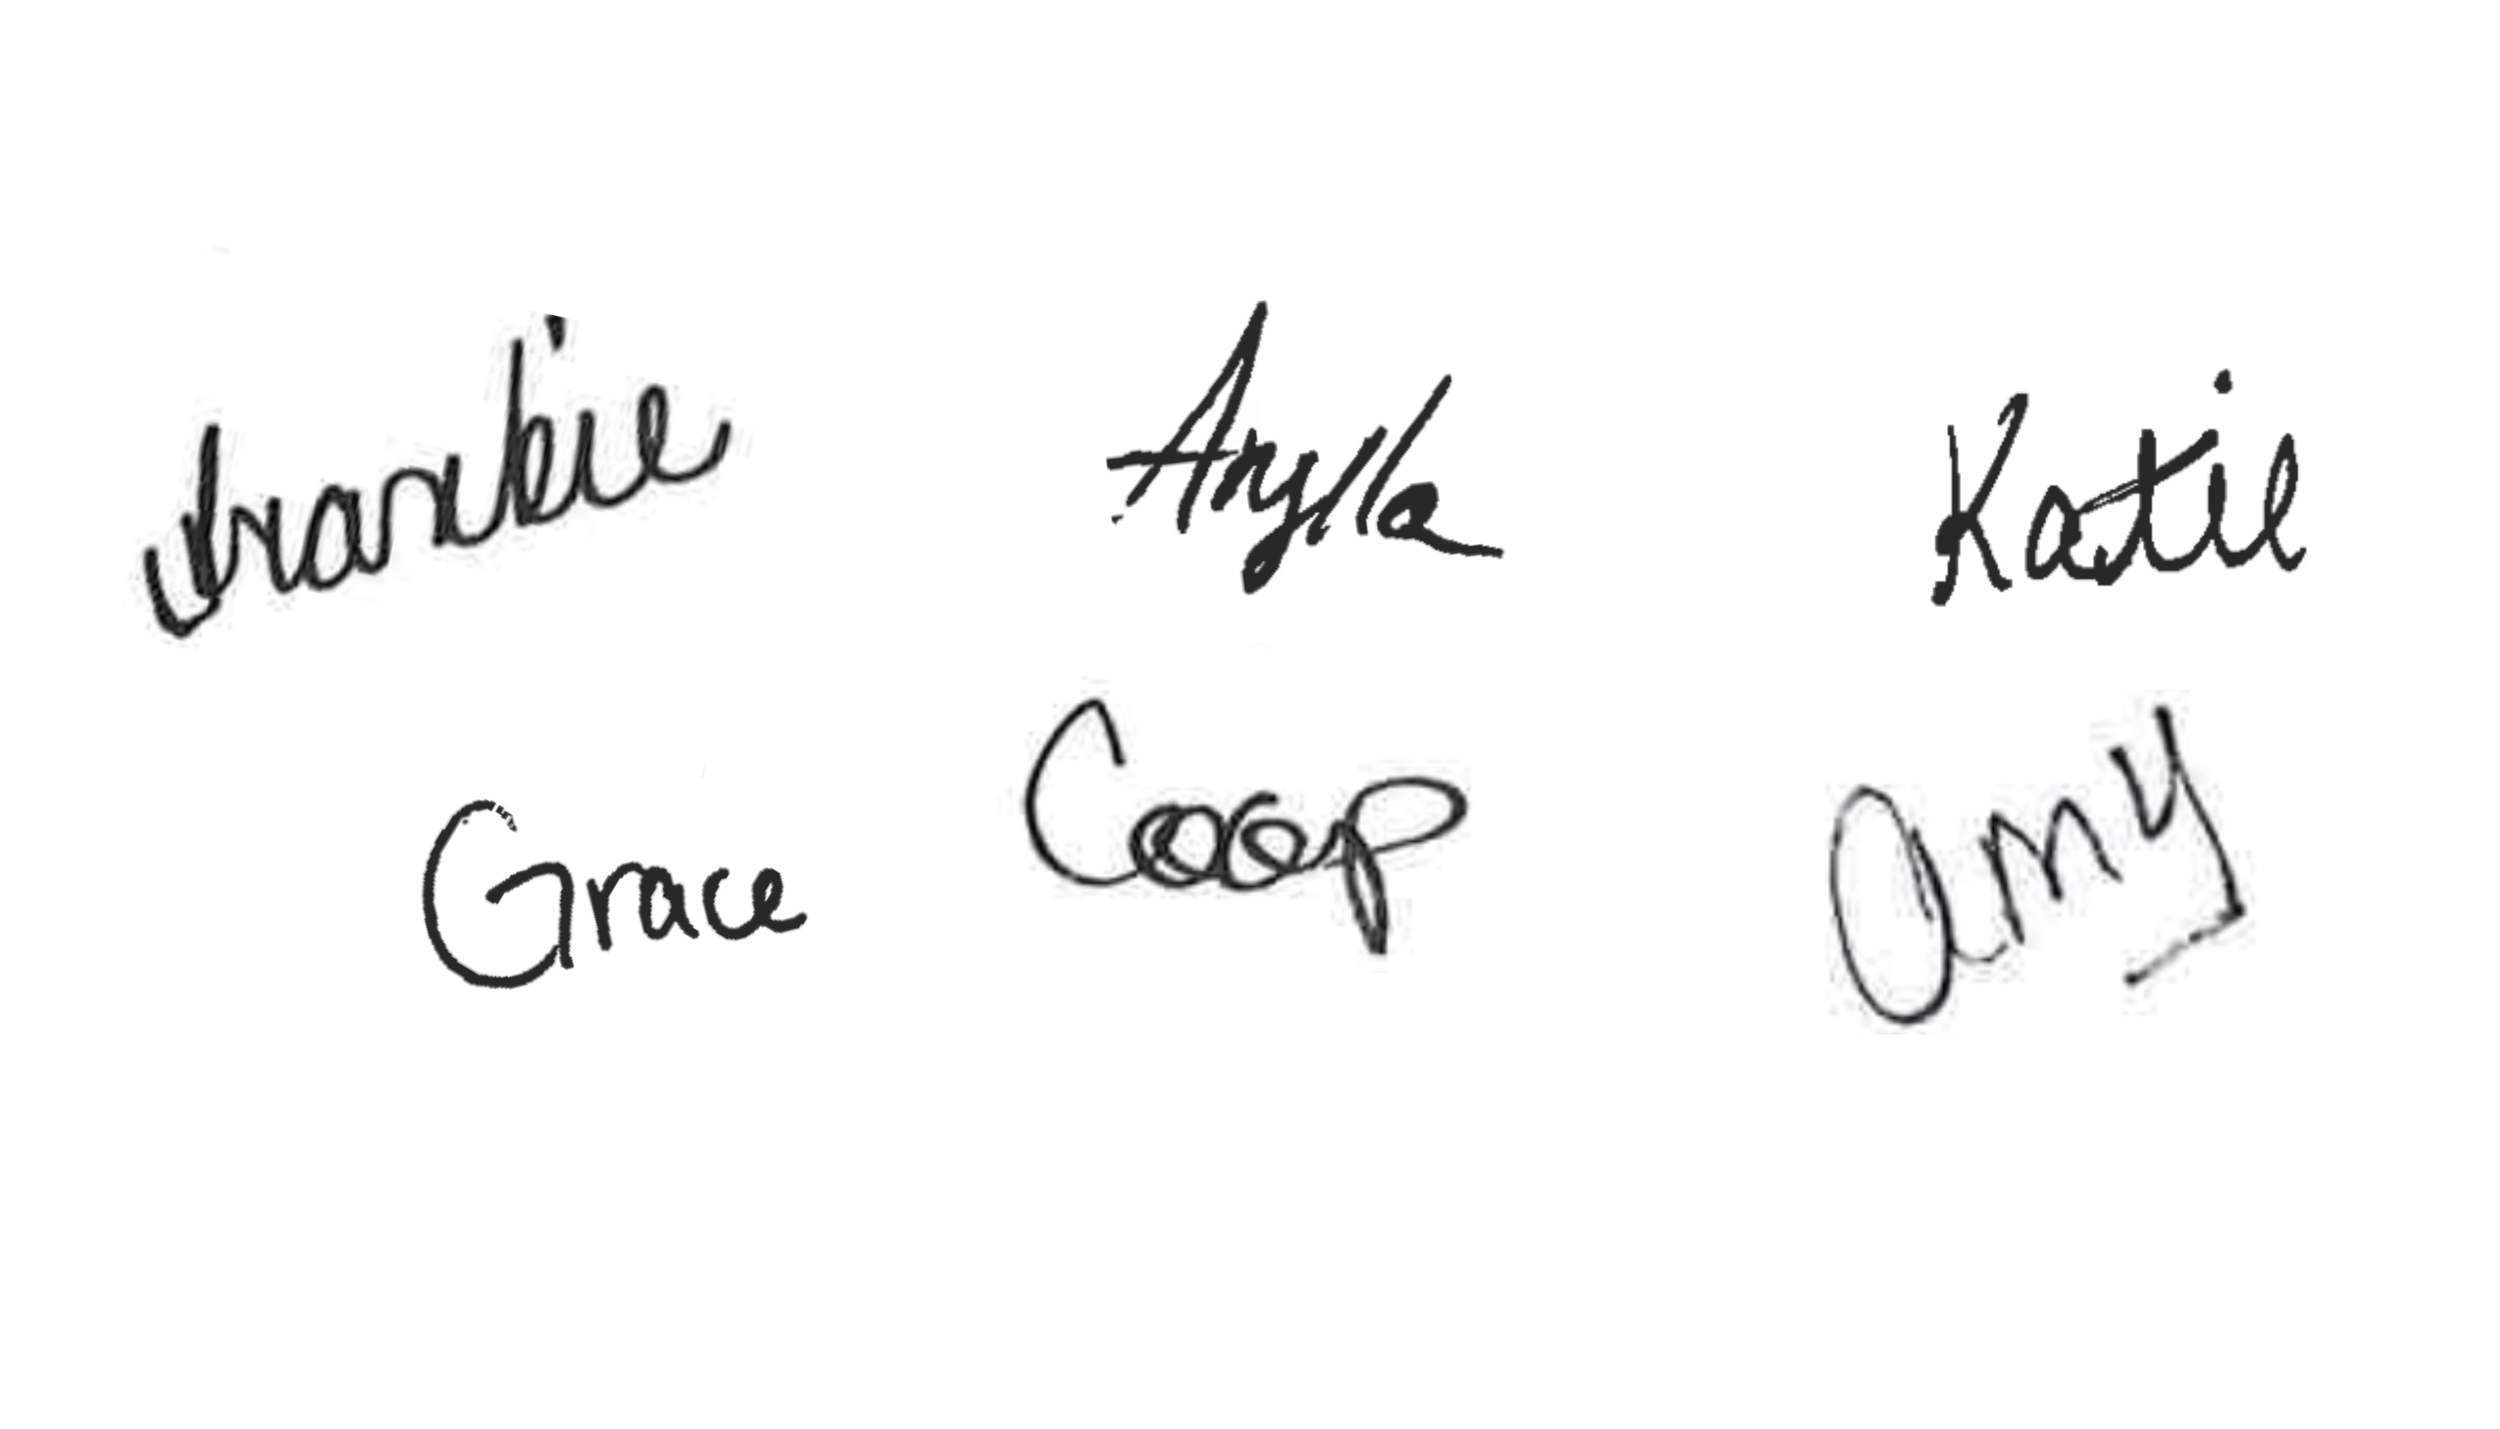 Frankie Anylla Katie
Grace Coop Amy